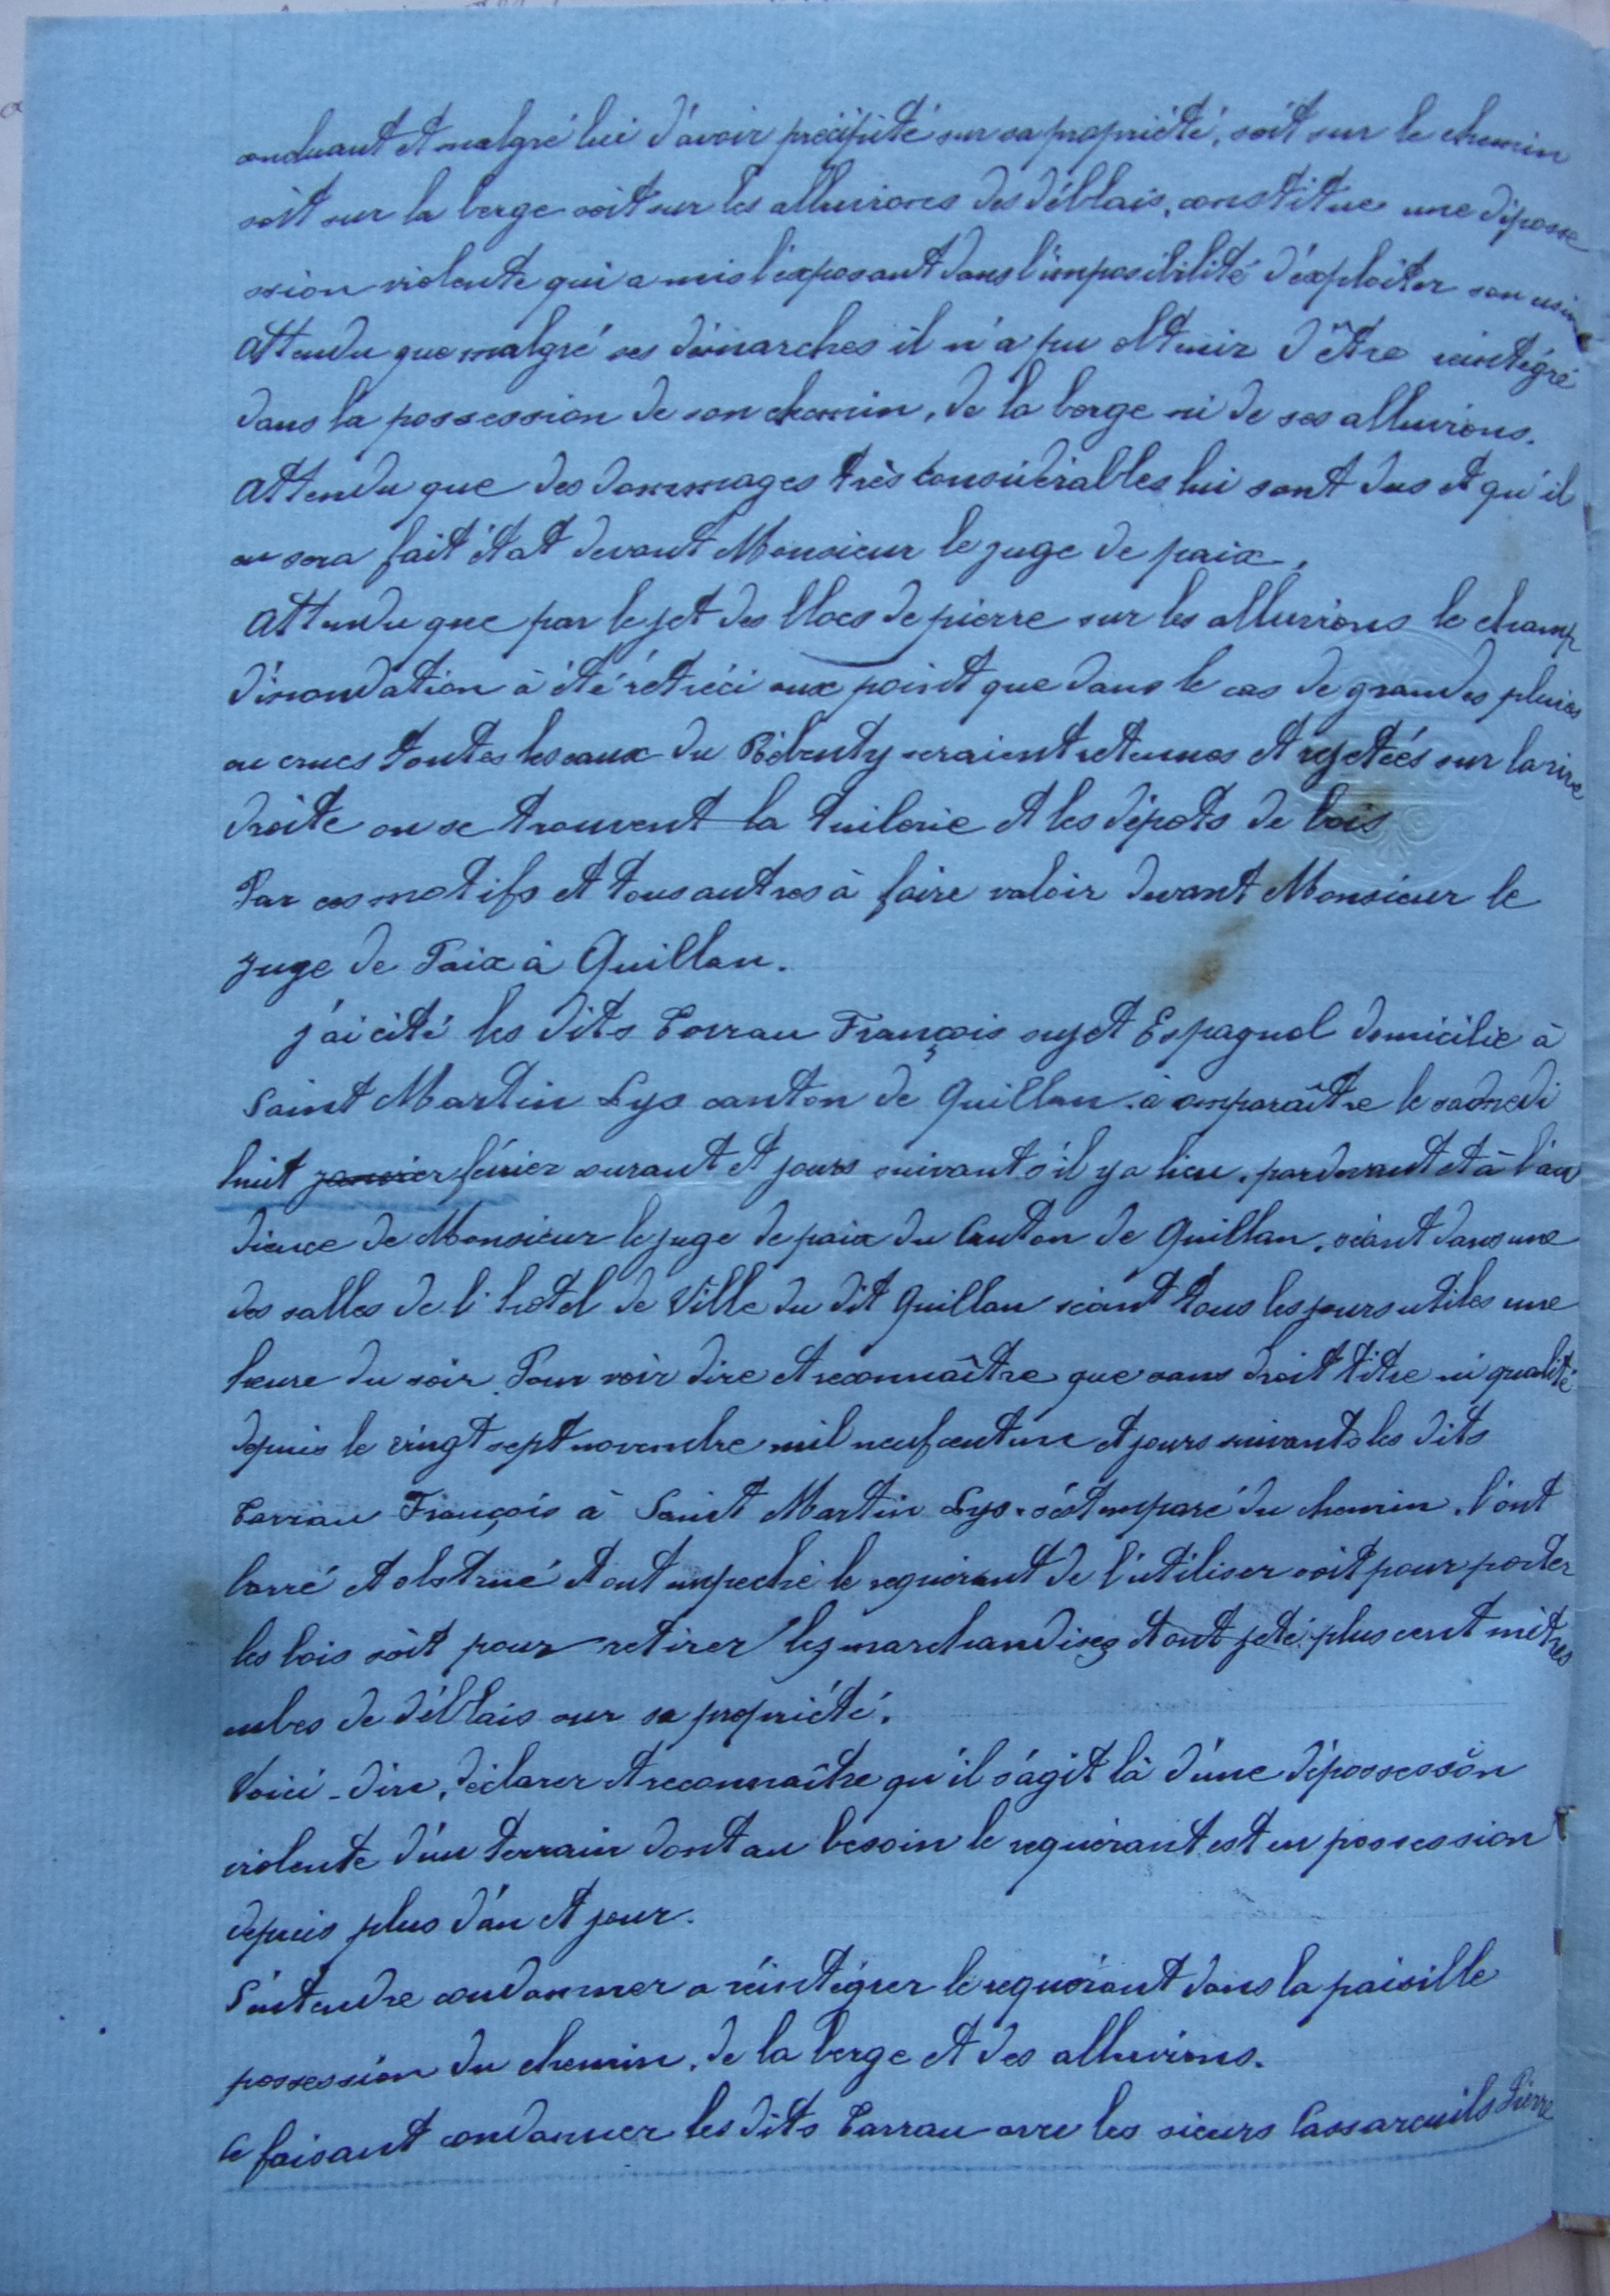 et malgré lui d'avoir précipité sur sa propriété, soit sur le chemin
soit sur la berge soit sur les alluvions des déblais, constitue une déposse
ssion violente qui a mis l'exposant dans l'imposibilité d'exploiter son usine
Attendu que malgré ses démarches il n'a pu obtenir d'être réintégré
dans la possession de son chemin, de la berge ni de ses alluvions.
Attendu que des dommages très considérables lui sont dus et qu'il
en sera fait état devant Monsieur le juge de paix.
Attendu que par le jet des blocs de pierre sur les alluvions le champ
d'inondation à été rétréci aux point que dans le cas de grandes pluies
ou crues toutes les eaux du Rébenty seraient retenues et rejetées sur la rive
droite ou se trouvent la tuilerie et les dépots de bois
Par ces motifs et tous autres à faire valoir devant Monsieur le
juge de Paix à Quillan.
j'ai cité les dits Tarrau François sujet Espagnol domicilié à
Saint Martin Lys canton de Quillan à comparaître le samedi
huit janvier février courant et jours suivant s'il y a lieu, pardevant et à l'au
dience de Monsieur le juge de paix du Canton de Quillan, séant dans une
des salles de l'hotel de Ville du dit Quillan séant tous les jours utiles une
heure du soir. Pour voir dire et reconnaître que sans droit titre ni qualité
depuis le vingt sept novembre mil neuf cent un et jours suivants les dits
Tarrau François à Saint Martin Lys s'est emparé du chemin, l'ont
barré et obstrué et ont empeché le requérant de l'utiliser soit pour porter
les bois soit pour retirer les marchandises et ont jeté plus cent mètres
cubes de déblais sur sa propriété.
Voici dire, déclarer et reconnaître qu'il s'agit là d'une dépossession
violente d'un terrain dont au besoin le requérant est en possession
depuis plus d'an et jour.
S'entendre condamner a réintégrer le requérant dans la paisible
possession du chemin, de la berge et des alluvions.
Ce faisant condamner les dits Tarrau avec les sieurs Pierre